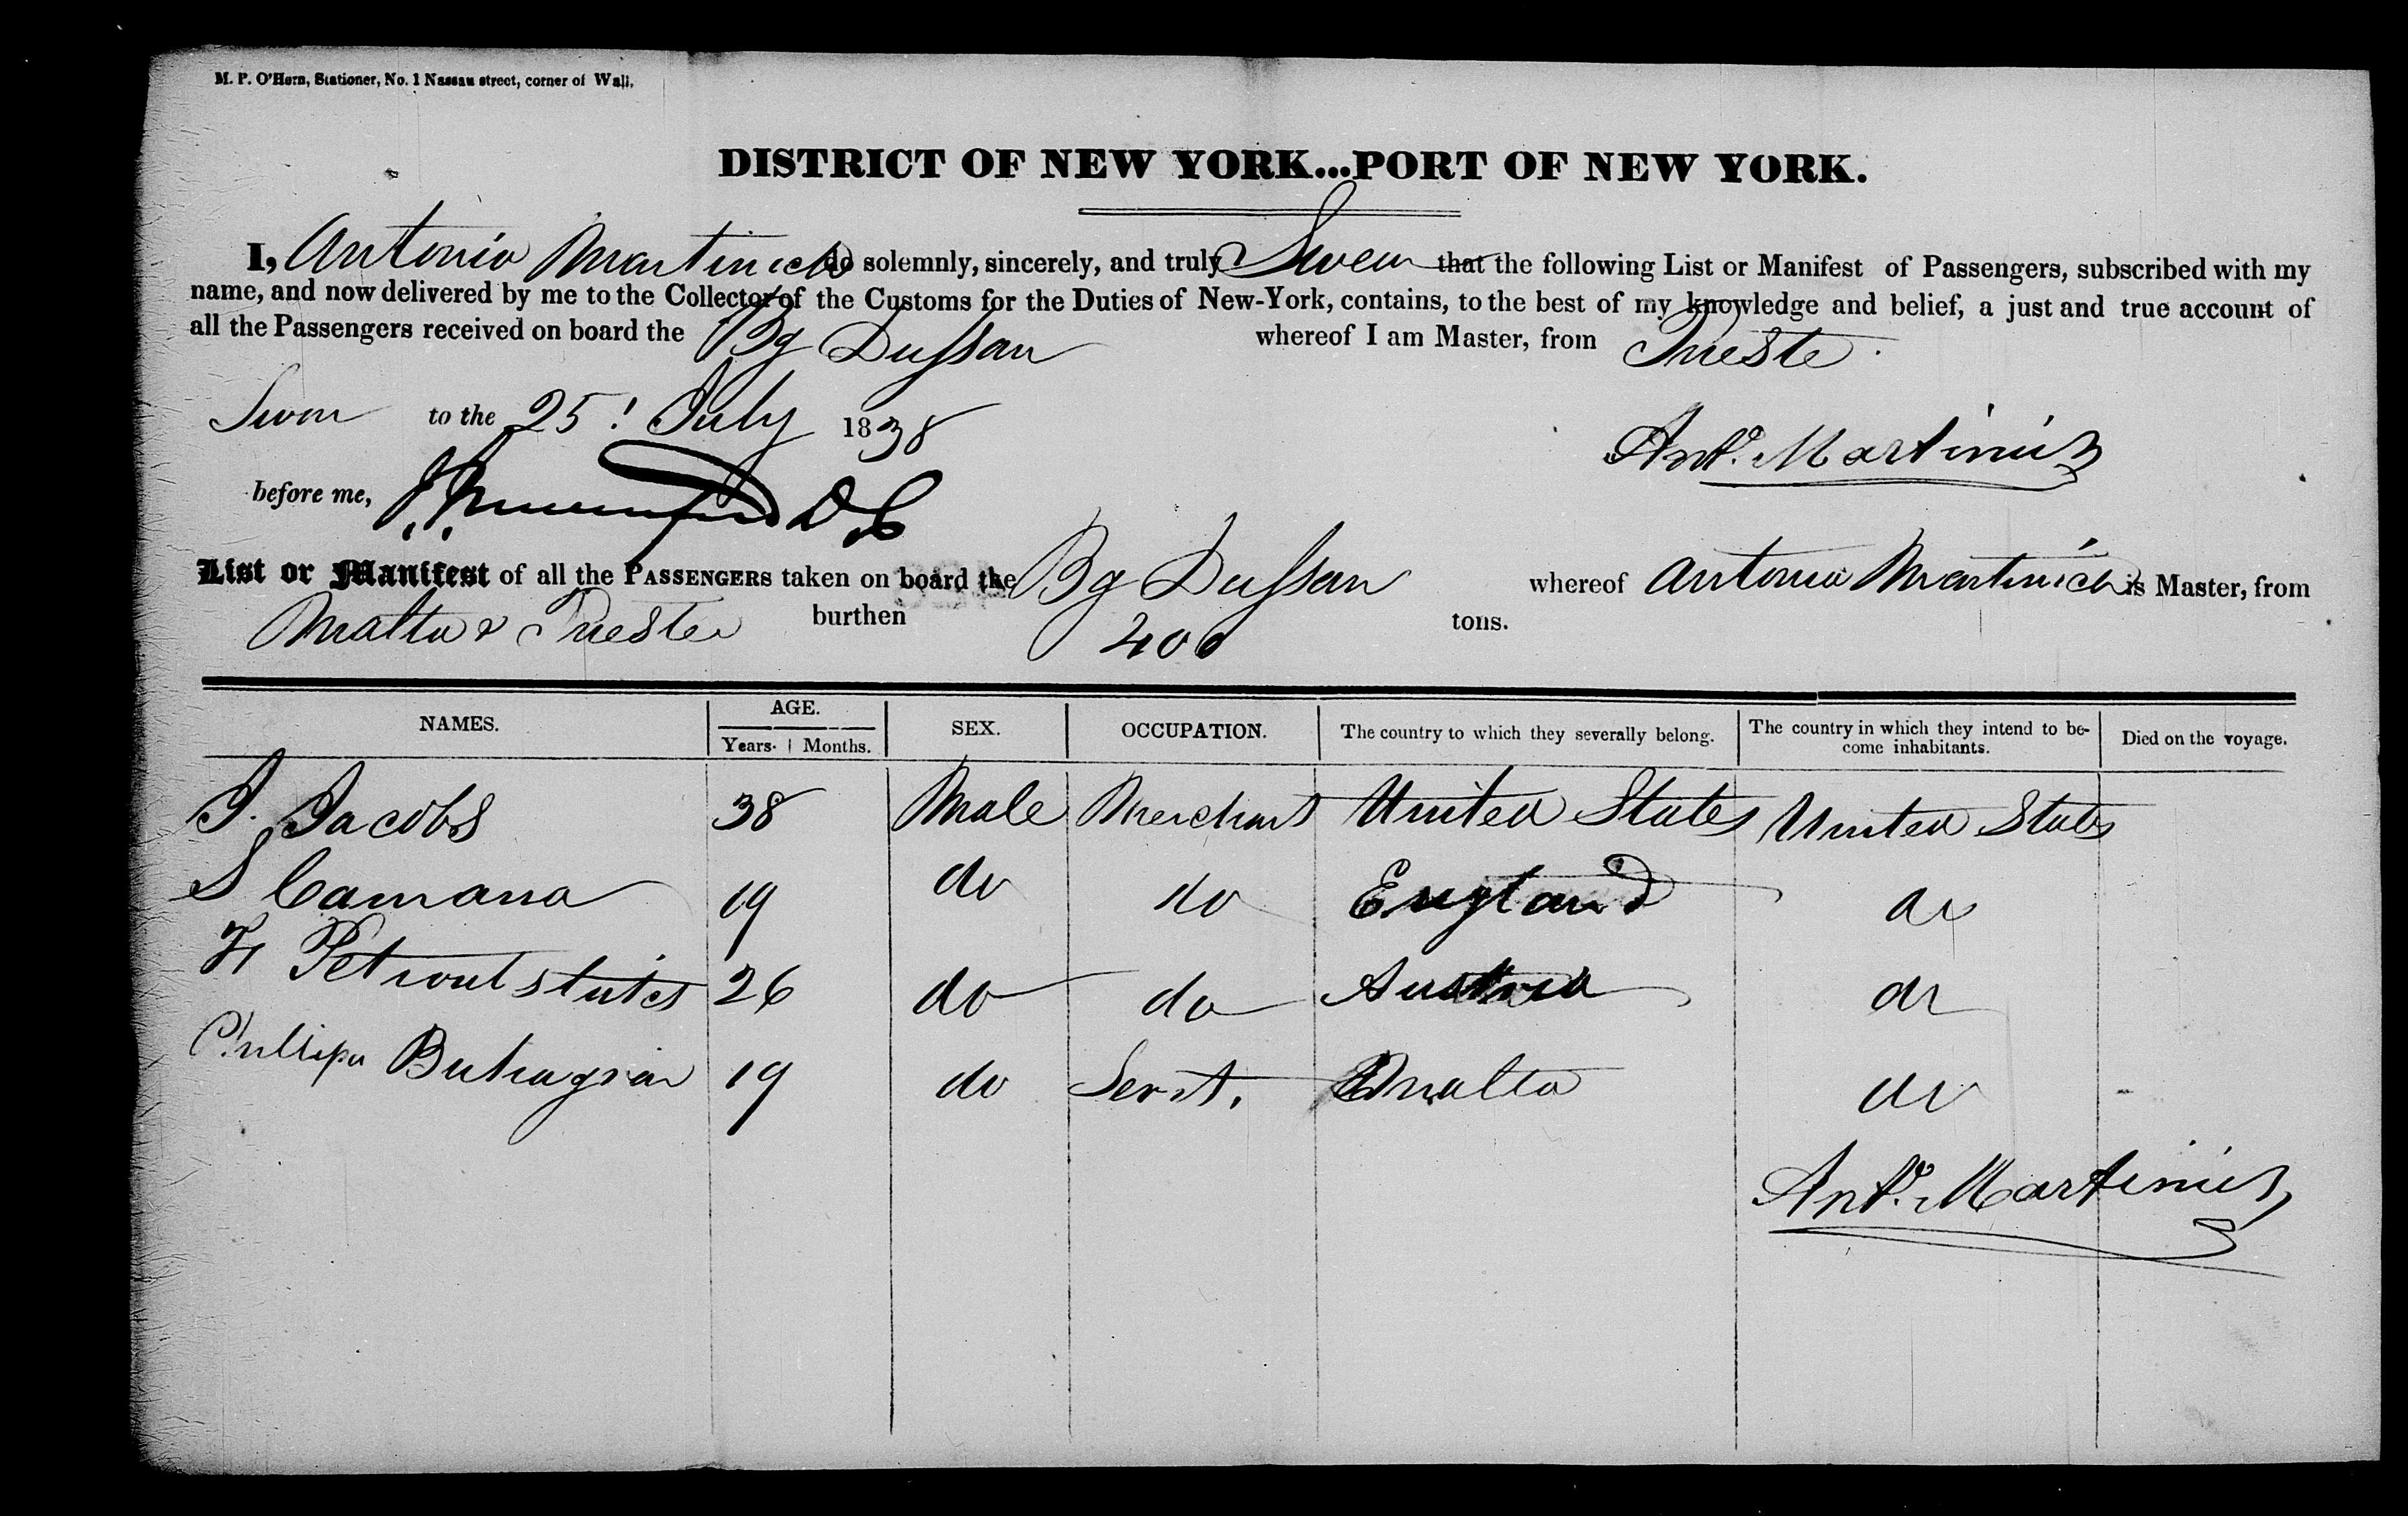 M. P. O'Horn, Stationer, No. 1 Nassau street, corner of Wall,
DISTRICT OF NEW YORK...PORT OF NEW YORK.
I, Antonio Martinich do solemnly, sincerely, and truly Swear that the following List or Manifest of Passengers, subscribed with my
name, and now delivered by me to the Collector of the Customs for the Duties of New-York, contains, to the best of my knowledge and belief, a just and true account of
all the Passengers received on board the Bg Dussan whereof I am Master, from Trieste.
Swon to the 25! July 1838
Anto. Martinich
before me, D C
List or Manifest of all the PASSENGERS taken on board the Bg Dussan whereof Antonio Martinich is Master, from
Malta & Trieste burthen 400 tons.
NAMES. AGE. Years. Months. SEX. OCCUPATION. The country to which they severally belong. The country in which they intend to become inhabitants. Died on the voyage.
J. Jacobs 38 Male Merchant United States United States
S Camana 19 do do England do
26 do do Austria do
19 do Servt. Malta do
Anto. Martinich